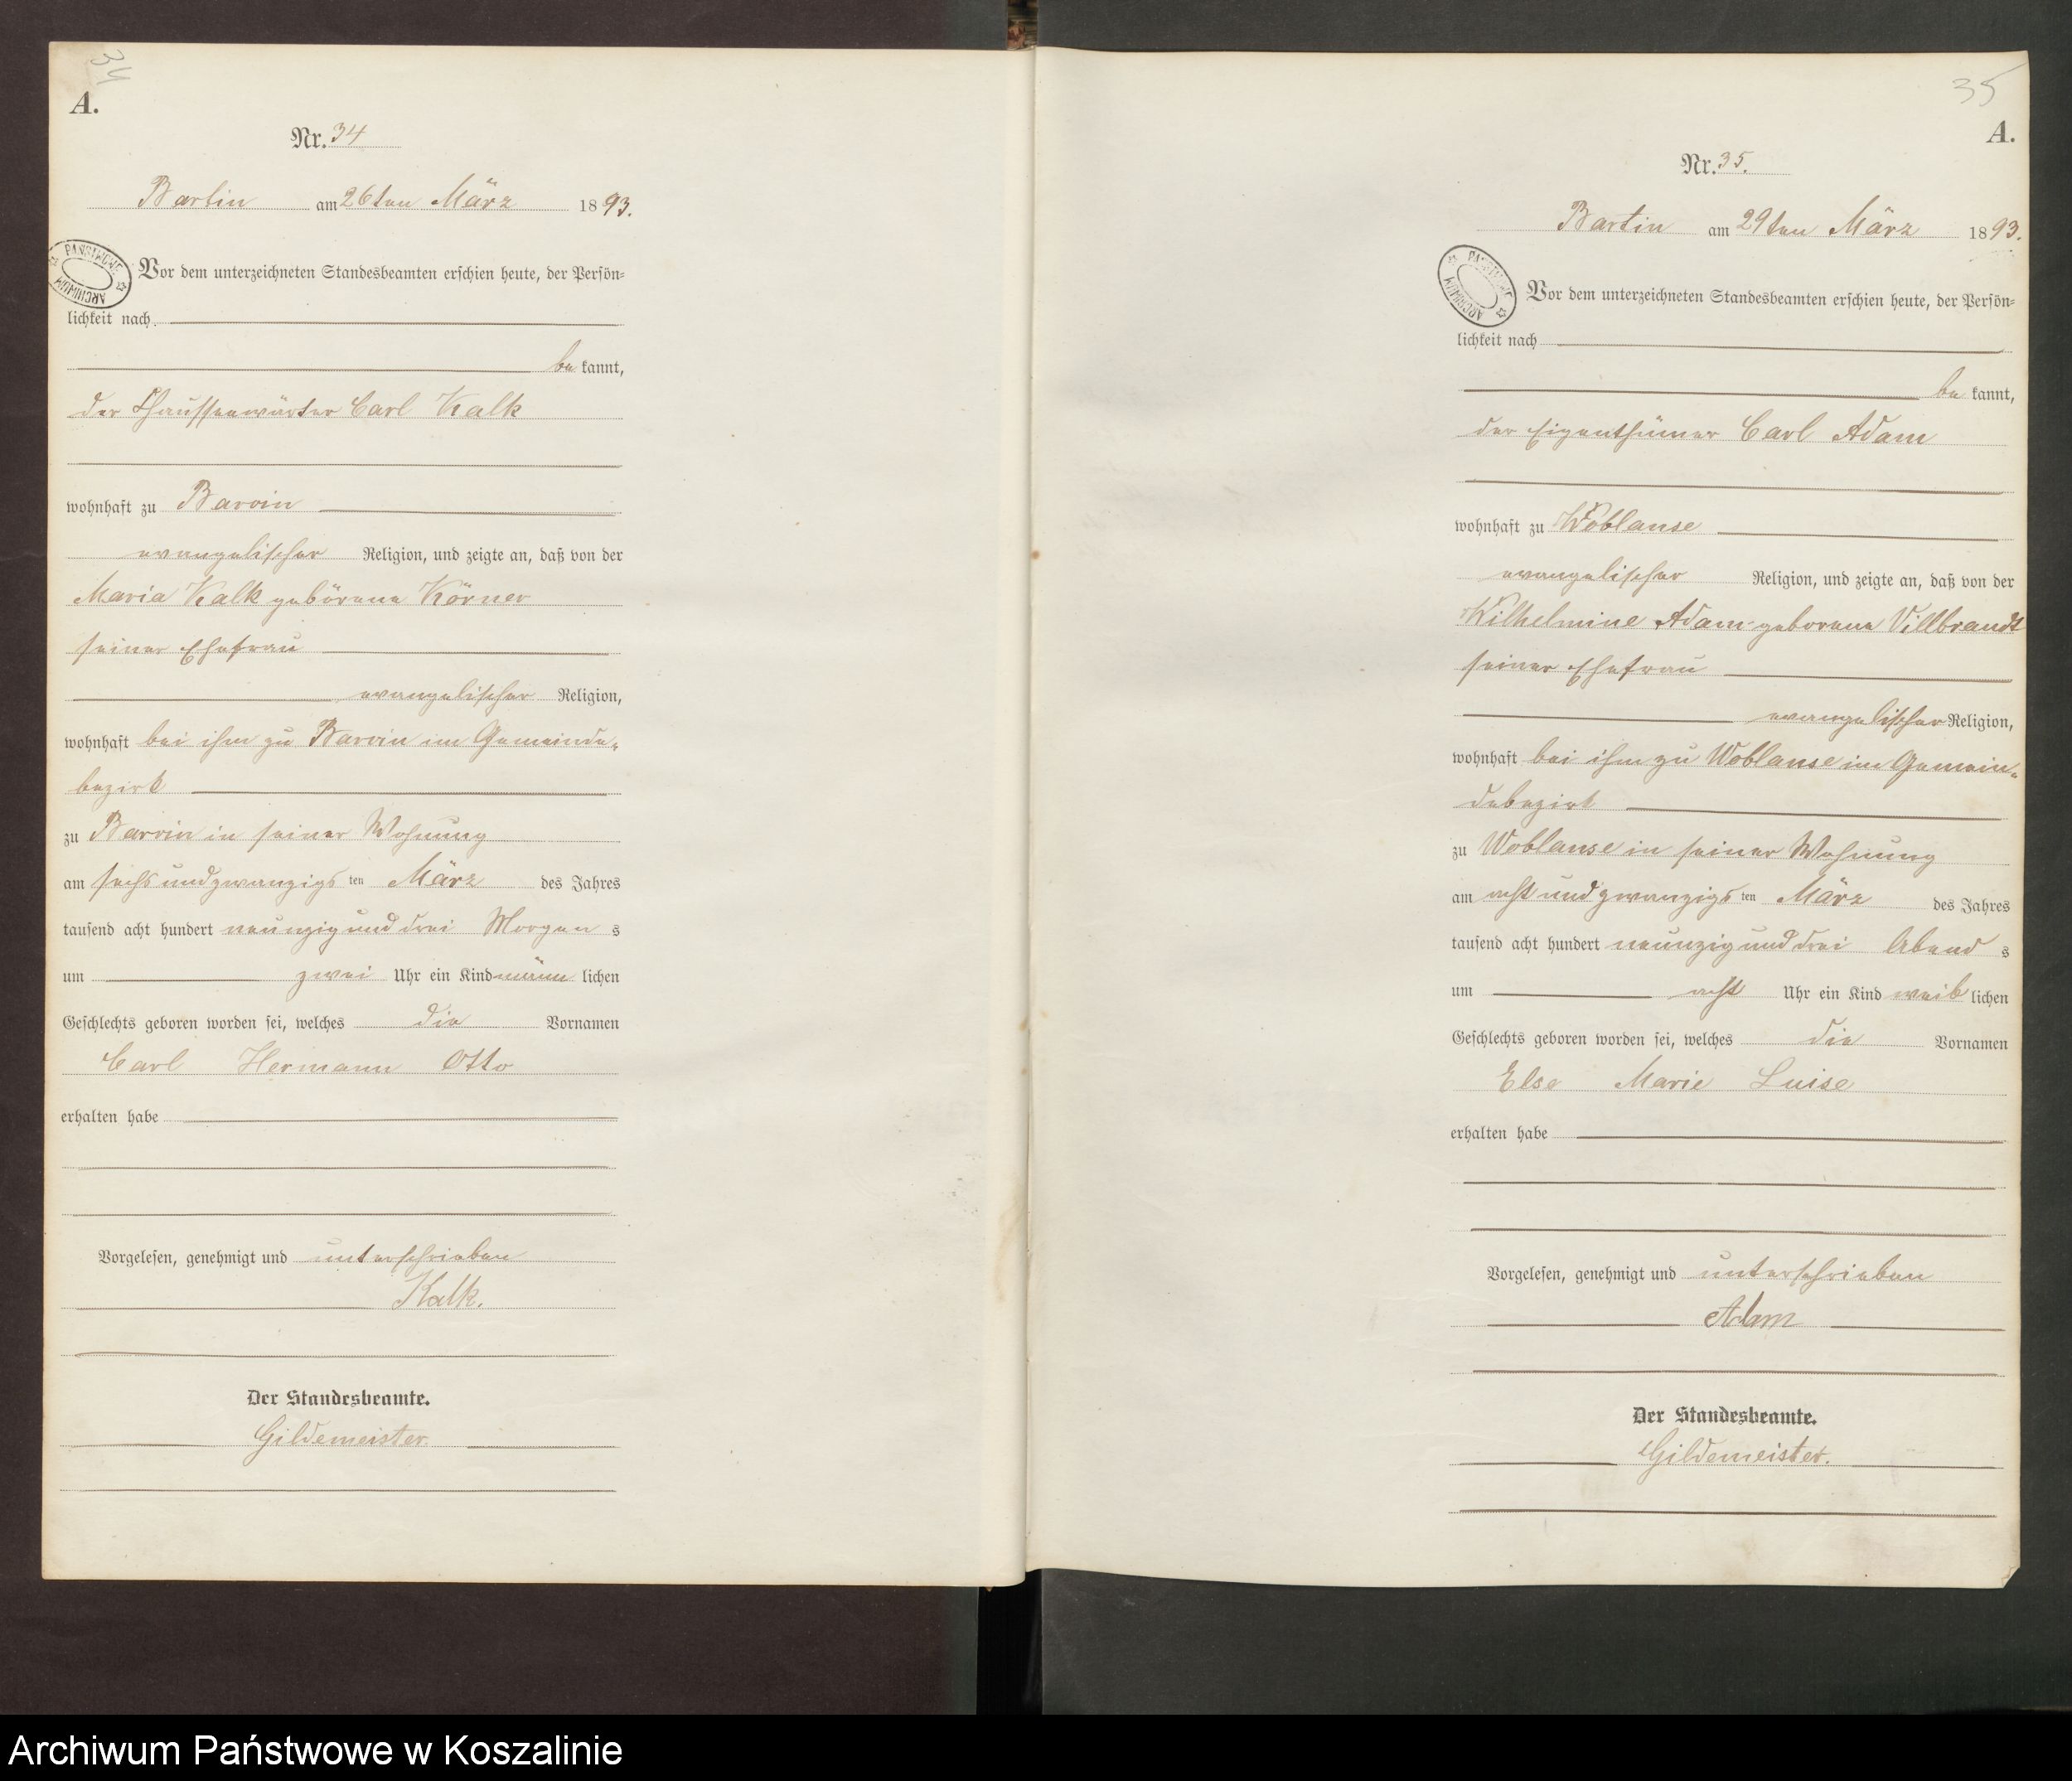 34
A.
Nr. 34
Bartin am 26ten März 1893.
PAŃSTWOWE ARCHIWUM
Vor dem unterzeichneten Standesbeamten erschien heute, der Persön=
lichkeit nach
be kannt,
der Chausseewärter Carl Kalk
wohnhaft zu Barvin
evangelischer Religion, und zeigte an, daß von der
Maria Kalk geborene Körner
seiner Ehefrau
evangelischer Religion,
wohnhaft bei ihm zu Barvin im Gemeinde=
bezirk
zu Barvin in seiner Wohnung
am sechsundzwanzigs ten März des Jahres
tausend acht hundert neunzig und drei Morgen s
um zwei Uhr ein Kind männ lichen
Geschlechts geboren worden sei, welches die Vornamen
Carl Hermann Otto
erhalten habe
Vorgelesen, genehmigt und unterschrieben
Kalk.
Der Standesbeamte.
Gildemeister.
35
A.
Nr. 35.
Bartin am 29ten März 1893.
PAŃSTWOWE ARCHIWUM
Vor dem unterzeichneten Standesbeamten erschien heute, der Persön=
lichkeit nach
be kannt,
der Eigenthümer Carl Adam
wohnhaft zu Woblanse
evangelischer Religion, und zeigte an, daß von der
Wilhelmine Adam geborene Villbrandt
seiner Ehefrau
evangelischer Religion,
wohnhaft bei ihm zu Woblanse im Gemein=
debezirk
zu Woblanse in seiner Wohnung
am acht und zwanzigs ten März des Jahres
tausend acht hundert neunzig und drei Abend s
um acht Uhr ein Kind weib lichen
Geschlechts geboren worden sei, welches die Vornamen
Else Marie Luise
erhalten habe
Vorgelesen, genehmigt und unterschrieben
Adam
Der Standesbeamte.
Gildemeister.
Archiwum Państwowe w Koszalinie